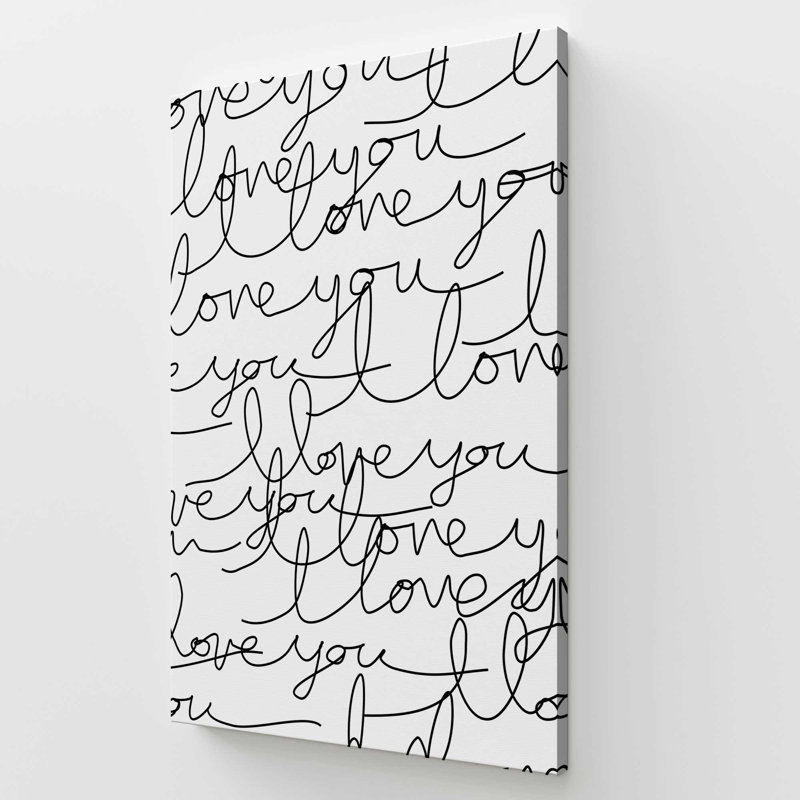 ove you I l
love you
I love you
love you I
e you I love
I love you
ve you I love y
u I love y
love you I lo
ou I l